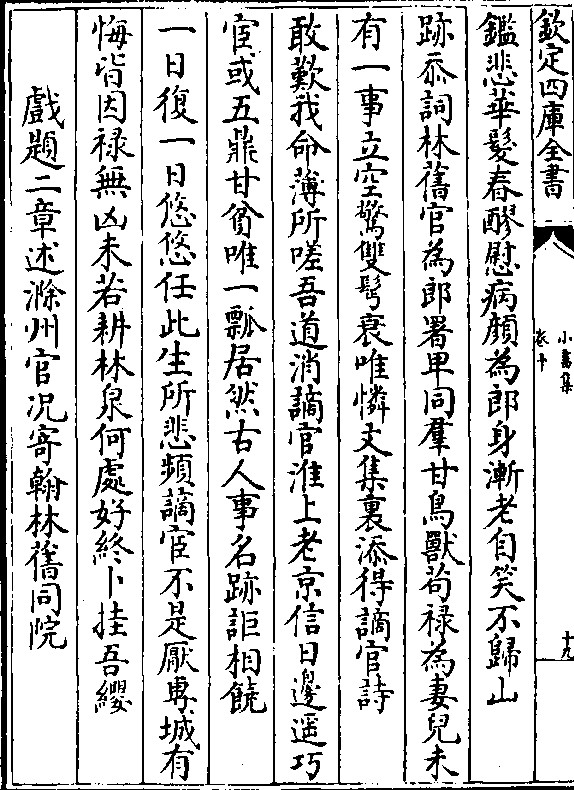 欽定四庫全書
小畜集
卷十
十九
鑑悲華髮春醪慰病顔為郎身漸老自笑不歸山
跡忝詞林舊官為郎署卑同羣甘鳥獸苟禄為妻兒未
有一事立空驚雙鬢衰唯憐文集裏添得謫官詩
敢歎我命薄所嗟吾道消謫官淮上老京信日邊遥巧
宦或五鼎甘貧唯一瓢居然古人事名跡詎相饒
一日復一日悠悠任此生所悲頻謫宦不是厭專城有
悔皆因禄無凶未若耕林泉何處好終卜挂吾纓
戲題二章述滁州官况寄翰林舊同院